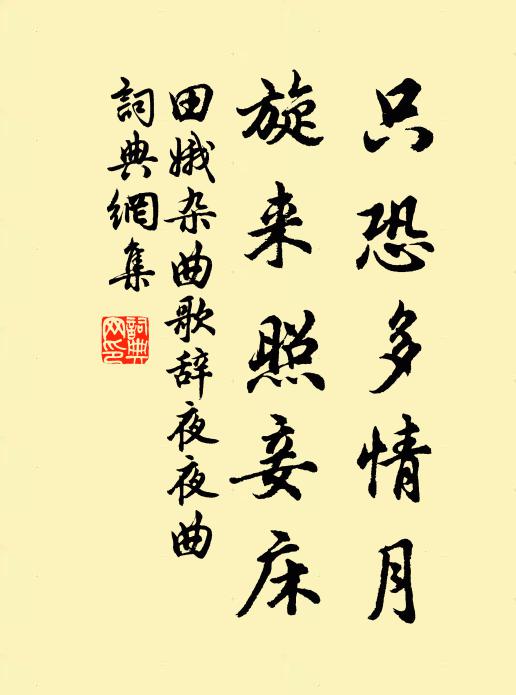 只恐多情月
旋来照妾床
田娥杂曲歌辞夜夜曲
詞典網集
詞典网印